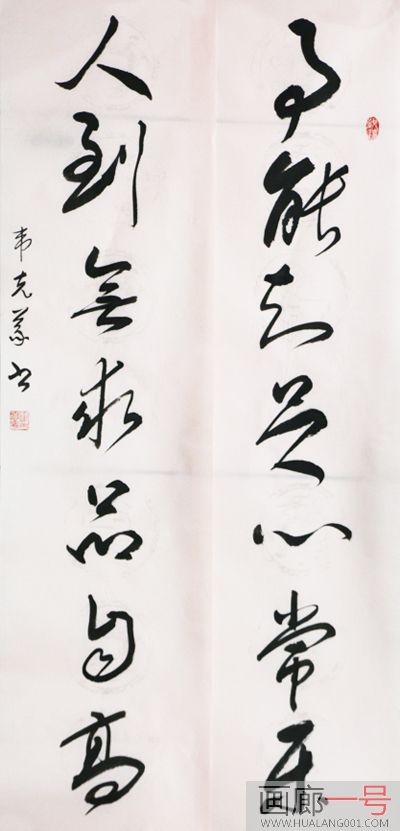 事能知足心常
人到無求品自高
韦克義书
画廊一号
WWW.HUALANG001.COM